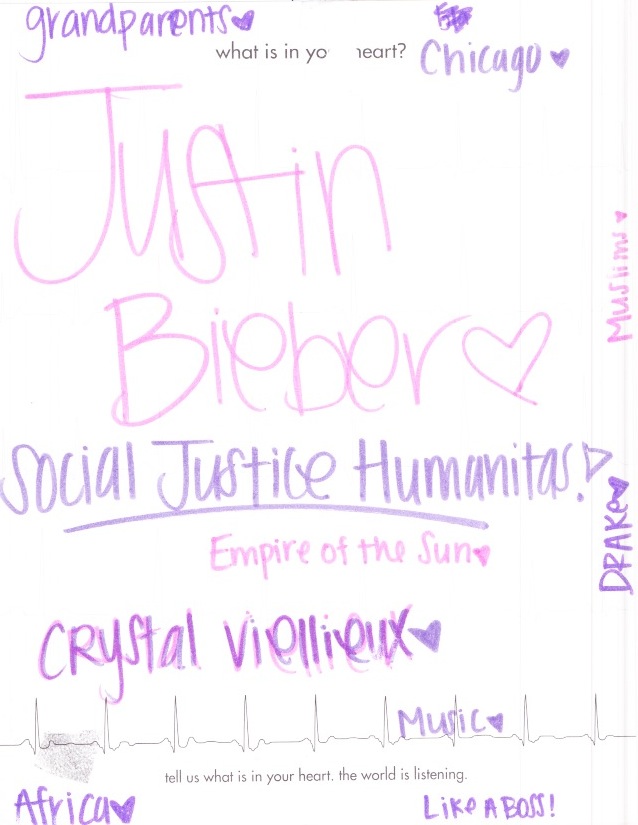 grandparents
Chicago
what is in yo eart?
Justin
Bieber
Muslims
Social Justice Humanitas!
DRAKE
Empire of the Sun
Crystal Viellieux
Music
tell us what is in your heart. the world is listening.
Africa
Like A BOSS!